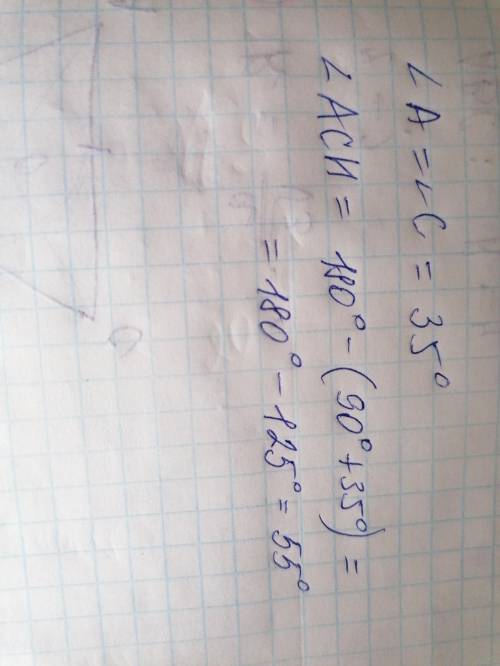 ∠A = ∠C = 35°
∠ACH = 180° - (90° + 35°) =
= 180° - 125° = 55°